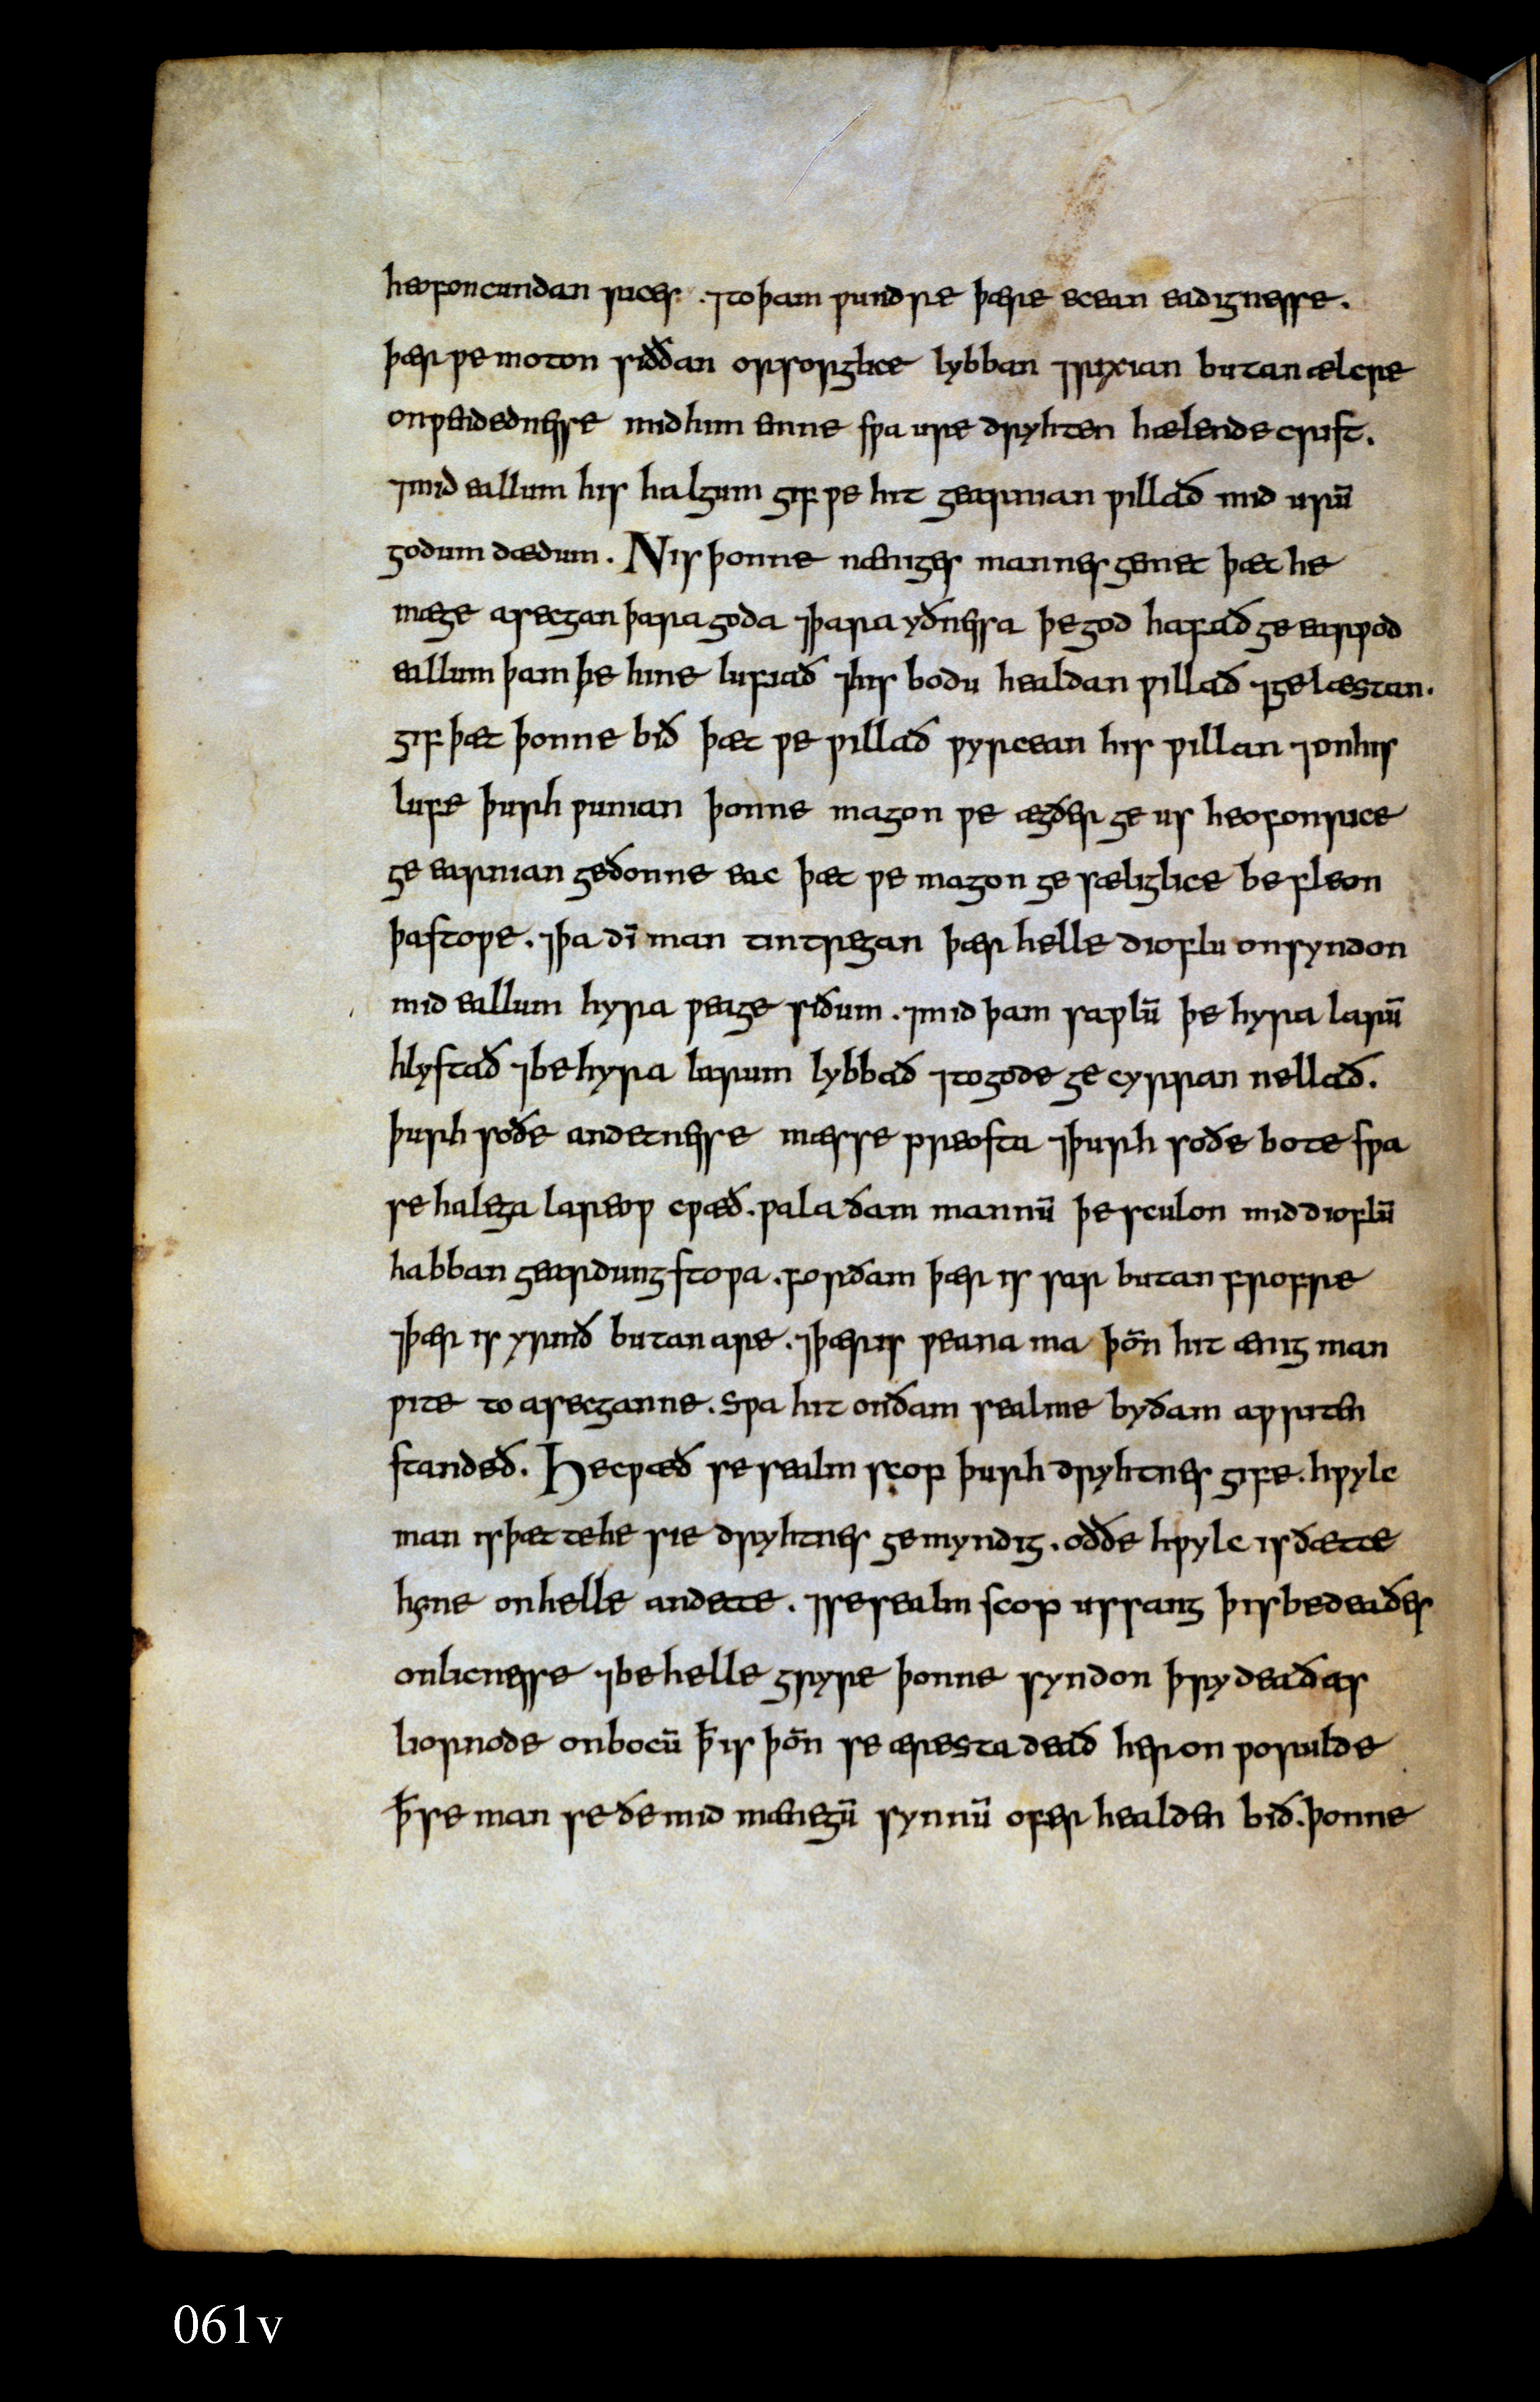 heofoncundan rices . ⁊ to þam ƿundre þære ecean eadignesse .
þær ƿe moton siððan orsorglice lybban ⁊ rixian butan ælcre
onƿendednesse mid him anne sƿa ure dryhten hælende crist .
⁊ mid eallum his halgum gif ƿe hit gearnian ƿillað mid urū
godum dædum . Nis þonne næniges mannes gemet þæt he
mæge asecgan þara goda ⁊ þara yðnessa þe god hafað ge earƿod
eallum þam þe hine lufiað ⁊ his bodu healdan ƿillað ⁊ gelæstan .
gif þæt þonne bið þæt ƿe ƿillað ƿyrcean his ƿillan ⁊ on his
lufe þurh ƿunian þonne magon ƿe ægðer ge us heofonrice
ge earnian ge ðonne eac þæt ƿe magon ge sæliglice be fleon
þa stoƿe . ⁊ þa dī man tintregan þær helle dioflu on syndon
mid eallum hyra ƿeage siðum . ⁊ mid þam saƿlū þe hyra larū
hlystað ⁊ be hyra larum lybbað ⁊ to gode ge cyrran nellað .
þurh soðe andetnesse mæsse preosta ⁊ þurh soðe bote sƿa
se halega lareoƿ cƿæð . ƿala ðam mannū þe sculon mid dioflū
habban geardung stoƿa . forðam þær is sar butan frofre
⁊ þær is yrmð butan are . ⁊ þær is ƿeana ma þōn hit ænig man
ƿite to asecganne . sƿa hit on ðam sealme by ðam aƿriten
standeð . He cƿæð se sealm scop þurh dryhtnes gife . hƿylc
man is þæt te he sie dryhtnes gemyndig . oððe hƿylc is ðætte
hyne on helle andette . ⁊ se sealm scop us sang þis be deaðes
onlicnesse ⁊ be helle gryre þonne syndon þry deaðas
liornode on bocū ꝥ is þōn se æresta deað her on ƿorulde
ꝥ se man se ðe mid mænegū synnū ofer healden bið . þonne